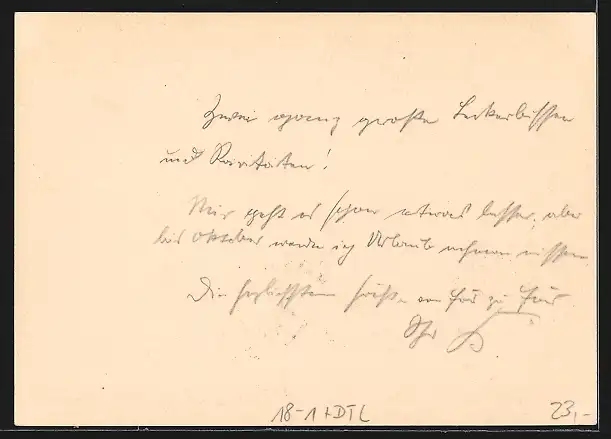 Zwei ganz große Leckerbissen
und Raritäten!
Mir geht es schon etwas besser, aber
bis Oktober werde ich Urlaub nehmen müssen.
Die herzlichsten Grüße von Haus zu Haus
Ihr
18-1+DTL
23,-